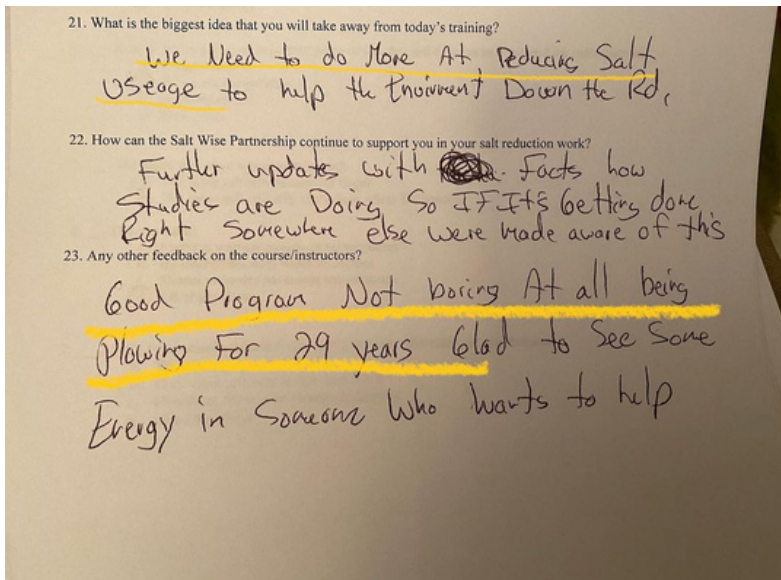 21. What is the biggest idea that you will take away from today's training?
We Need to do More At Reducing Salt
Useage to help the Enoivment Down the Rd,
22. How can the Salt Wise Partnership continue to support you in your salt reduction work?
Further updates with Facts how
Studies are Doing So IF It's Getting done
Right Somewhere else were made aware of this
23. Any other feedback on the course/instructors?
Good Program Not boring At all being
Plowing For 29 years Glad to See Some
Energy in Someone Who Wants to help